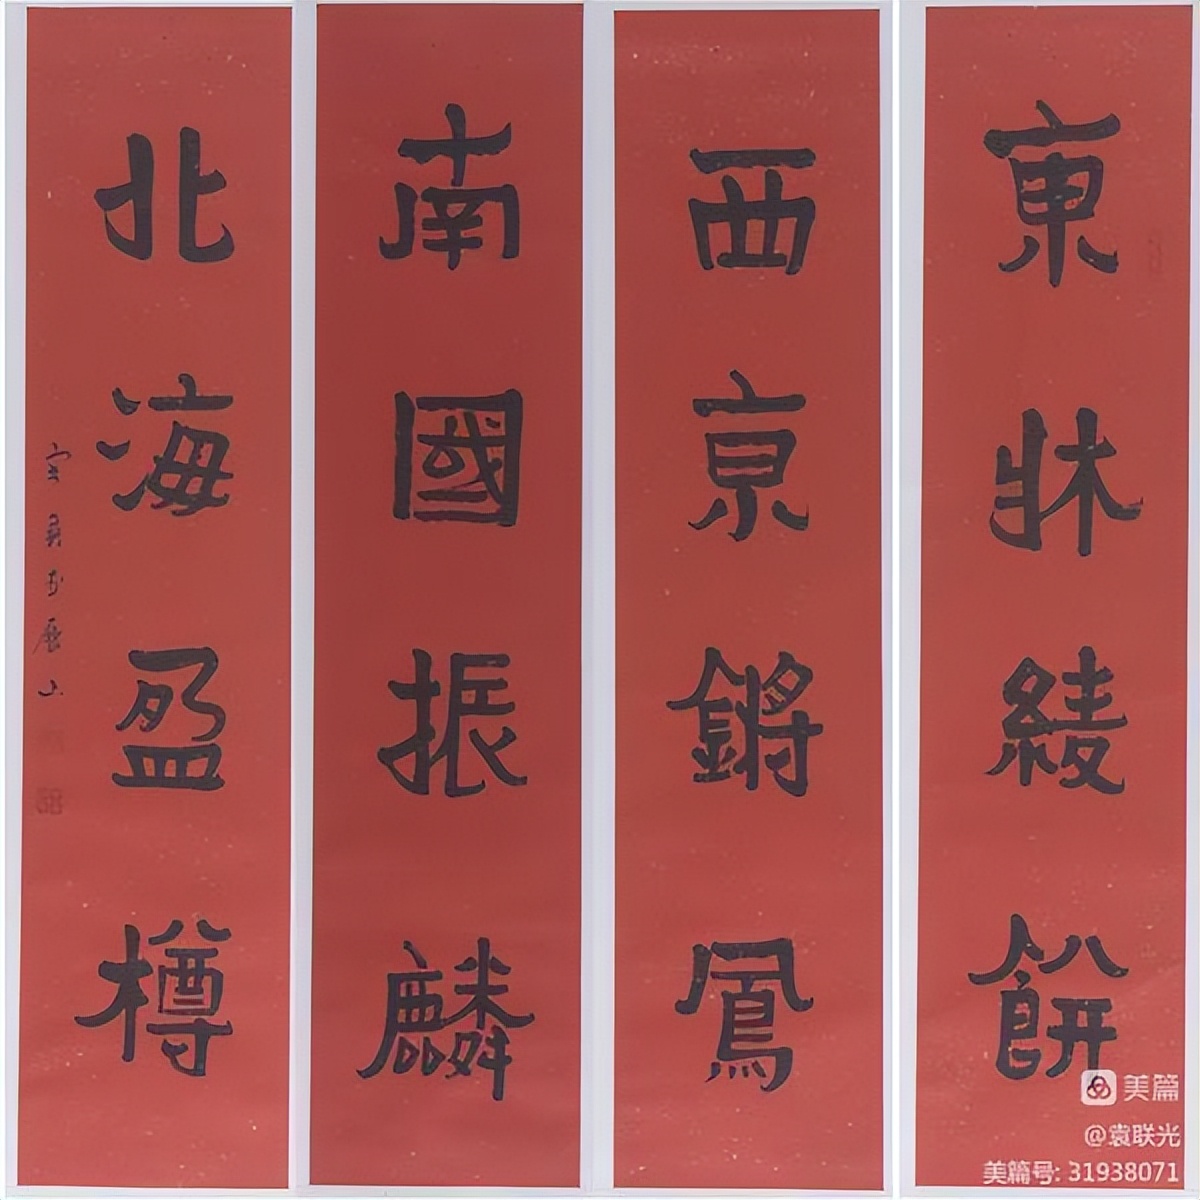 東牀綾餅
西京鏘鳳
南國振麟
北海盈樽
美篇
@袁联光
美篇号: 31938071